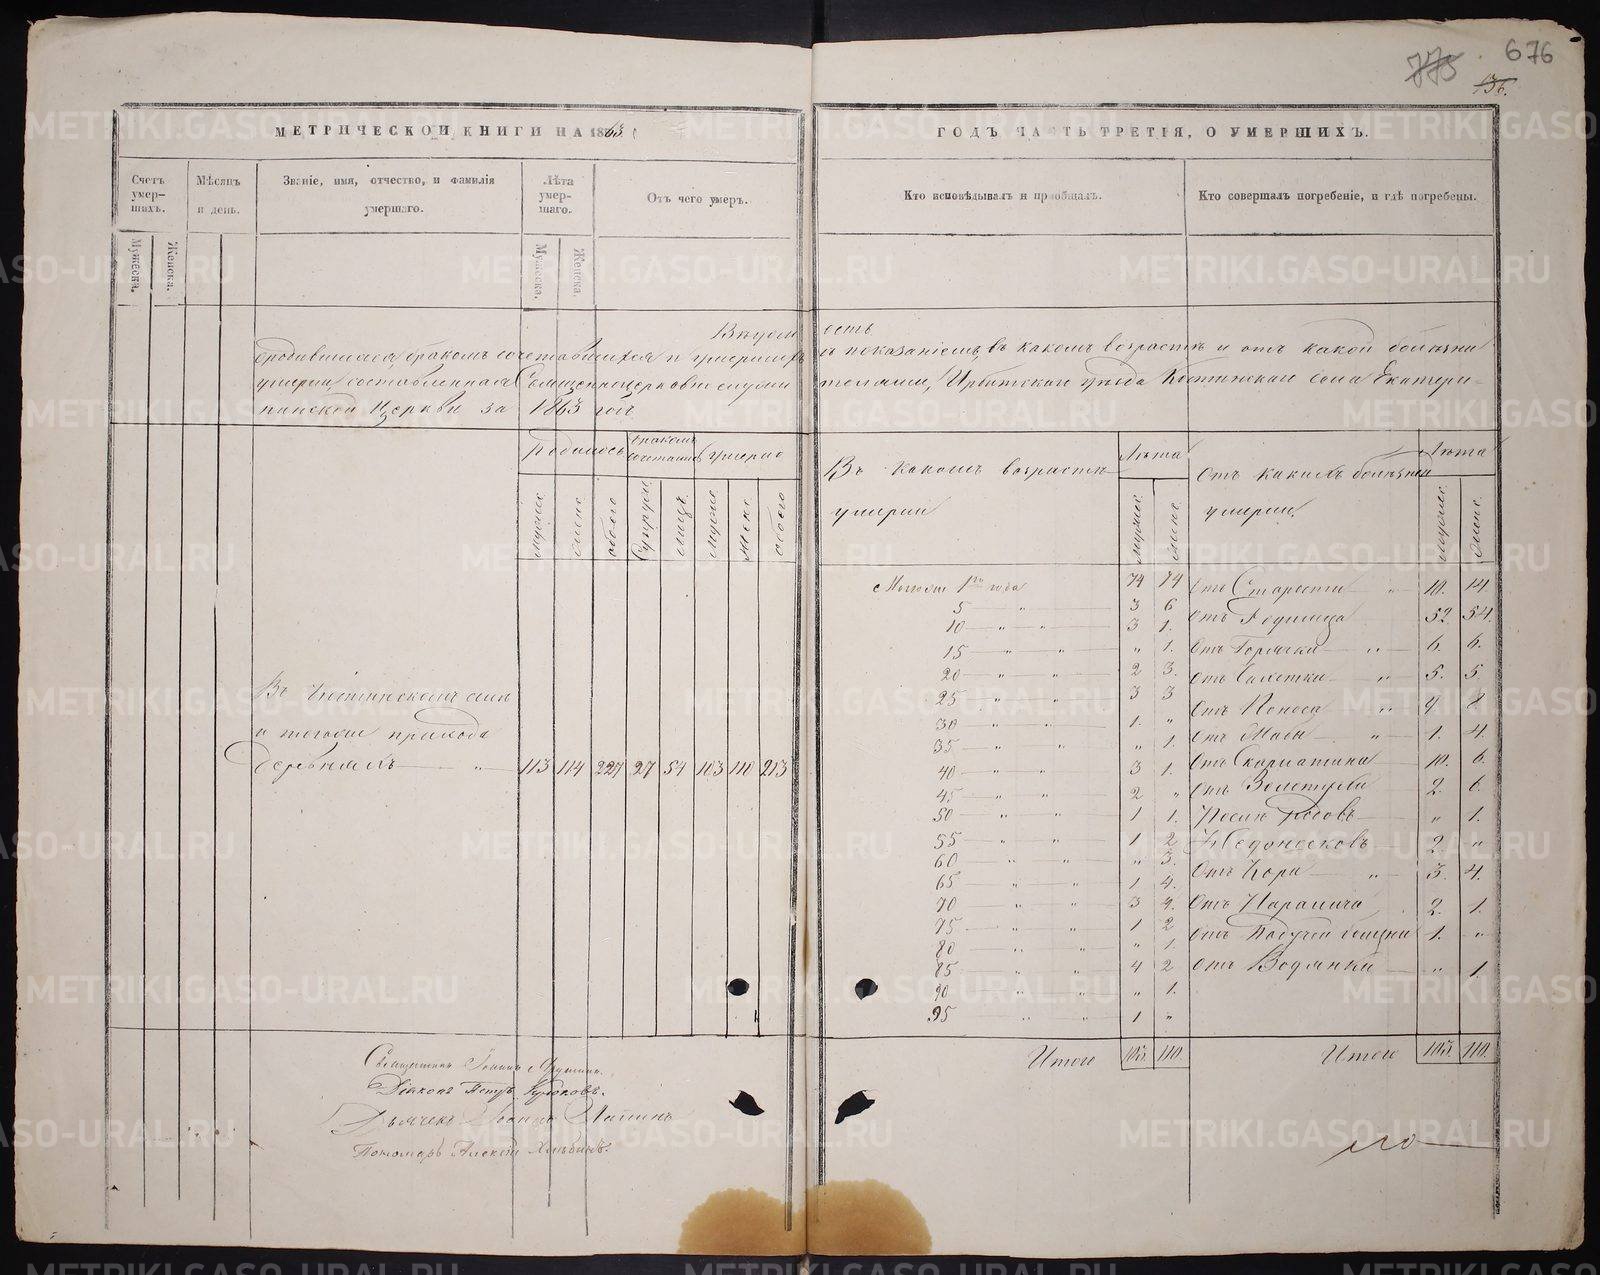 676
775
136.
МЕТРИЧЕСКОЙ КНИГИ НА 1863
ГОДЪ ЧАСТЬ ТРЕТІЯ, О УМЕРШИХЪ.
Счетъ умер-шихъ.
Мужеска.
Женска.
Мѣсяцъ и день.
Званіе, имя, отчество, и фамилія умершаго.
Лѣта умер-шаго.
Мужеска.
Женска.
Отъ чего умеръ.
Кто исповѣдывалъ и пріобщалъ.
Кто совершалъ погребеніе, и гдѣ погребены.
Вѣдомость
о родившихся, бракомъ сочетавшихся и умершихъ съ показаніемъ, въ какомъ возрастѣ и отъ какой болѣзни
умерли, составленная Священноцерковнослужителями, Ирбитскаго уѣзда Костинскаго села Екатери-
нинской Церкви за 1863 годъ
Родилось
бракомъ сочетались
умерло
мужес
женс
обоего
Супруж.
лицъ.
мужес
женс
обоего
Въ Костинскомъ селѣ
и тогоже прихода
деревняхъ — „ 113 114 227 27 54 103 110 213
Въ какомъ возрастѣ умерли
Лѣта
мужес.
женс.
Отъ какихъ болѣзней умерли.
Лѣта
мужес.
женс.
Моложе 1го года 74 74
5 — „ 3 6
10 — „ — „ 3 1.
15 — „ „ „ 1.
20 — „ „ 2 3.
25 — „ „ 3 3
30 — „ „ 1. „
35 — „ „ „ 1.
40 — „ „ 3 1.
45 — „ „ 2 „
50 — „ „ 1 1.
55 — „ „ 1 2
60 — „ „ „ 3.
65 — „ „ 1 4.
70 — „ „ 3 4.
75 — „ „ 1 2
80 — „ „ „ 1.
85 — „ „ 4 2
90 — „ „ „ 1.
95 — „ „ 1 „
Итого 103. 110.
Отъ Старости — „ 10. 14.
Отъ Родимца 52. 54.
Отъ Горячки — „ 6. 6.
Отъ Чахотки — „ 5. 5.
Отъ Поноса „ 9 8
Отъ Жабы — „ 1. 4.
Отъ Скарлатина 10. 6.
Отъ Золотухи 2. 6.
Послѣ Родовъ „ 1.
Недоносковъ 2. „
Отъ Кори — „ 3. 4.
Отъ Паралича 2. 1.
Отъ Падучей болѣзни 1. „
Отъ Водянки „ 1.
Итого 103. 110.
Священникъ Іоаннъ
Діаконъ Петръ Кубоковъ.
Дьячекъ Іоаннъ Лапинъ
Пономарь Алексѣй
METRIKI.GASO-URAL.RU